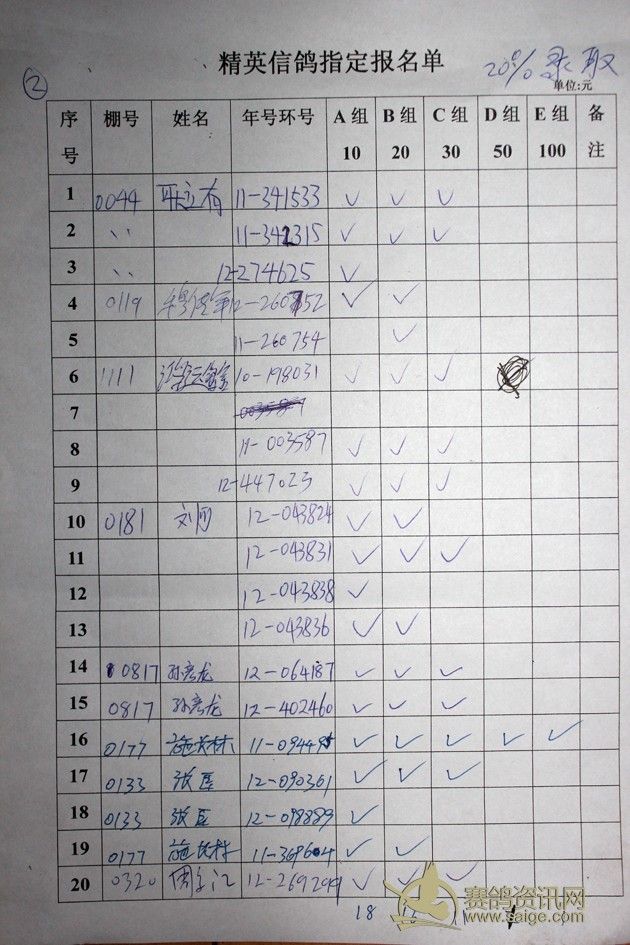 精英信鸽指定报名单
② 20% 录取
单位:元
序号 棚号 姓名 年号环号 A组10 B组20 C组30 D组50 E组100 备注
1 0044 11-341533 ✓ ✓ ✓
2 〃 11-342315 ✓ ✓ ✓
3 〃 12-274625 ✓
4 0119 12-260752 ✓ ✓
5 11-260754 ✓
6 1111 10-198031 ✓ ✓ ✓
7
8 11-003587 ✓ ✓ ✓
9 12-447023 ✓ ✓ ✓
10 0181 刘刚 12-043824 ✓ ✓
11 12-043831 ✓ ✓ ✓
12 12-043838 ✓
13 12-043836 ✓ ✓
14 0817 孙彦龙 12-064187 ✓ ✓ ✓
15 0817 孙彦龙 12-402460 ✓ ✓ ✓
16 0177 施长林 11-094495 ✓ ✓ ✓ ✓ ✓
17 0133 12-090361 ✓ ✓ ✓
18 0133 12-098889 ✓
19 0177 施长林 11-369604 ✓ ✓
20 0320 12-269204 ✓ ✓ ✓
18
赛鸽资讯网
www.saige.com